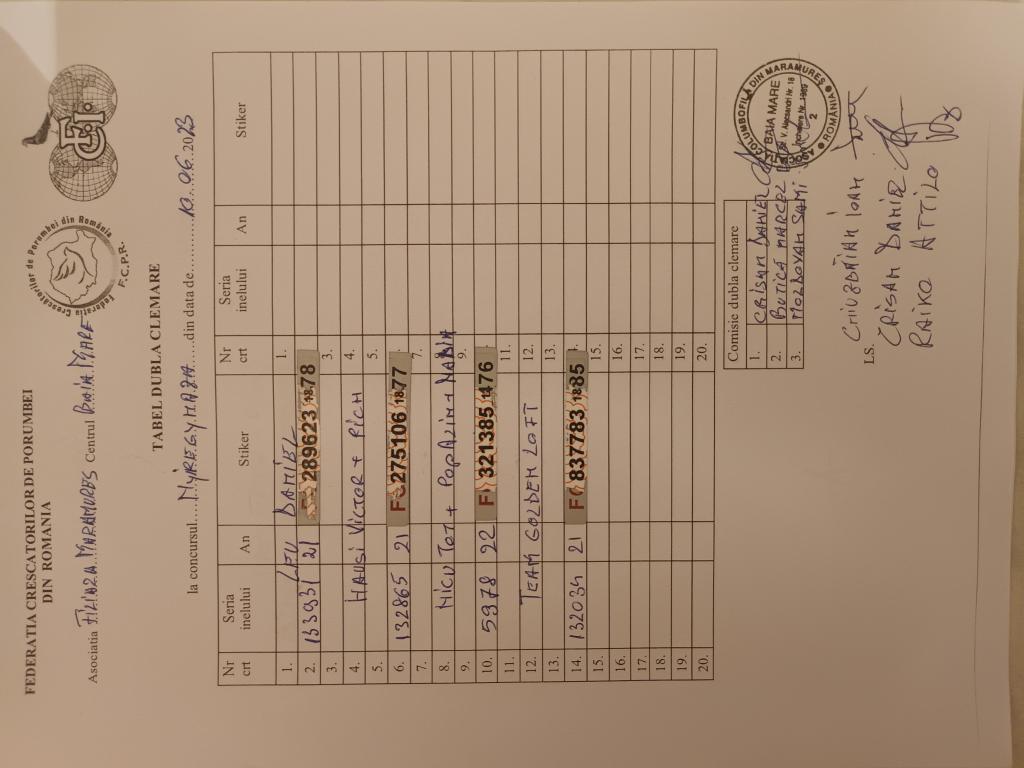 FEDERATIA CRESCATORILOR DE PORUMBEI
DIN ROMANIA
Federatia Crescatorilor de Porumbei din România
F.C.P.R.
Asociatia FILIALA MARAMURES Centrul BAIA MARE
TABEL DUBLA CLEMARE
la concursul NYIREGYHAZA din data de 10.06.2023
Nr crt Seria inelului An Stiker Nr crt Seria inelului An Stiker
1. LEU DANIEL 1.
2. 133931 21 289623 1878
3. 3.
4. HAUSI VICTOR + RICH 4.
5. 5.
6. 132865 21 275106 1877
7. 7.
8. NICU TOT + POPA LIN + NADIA
9. 9.
10. 5978 22 F 321385 1476
11. 11.
12. TEAM GOLDEN LOFT 12.
13. 13.
14. 132034 21 837783 1885
15. 15.
16. 16.
17. 17.
18. 18.
19. 19.
20. 20.
Comisie dubla clemare
1. CRISAN DANIEL
2. BUTICA MARCEL
3. MOLDOVAN SAMI
ASOCIAȚIA COLUMBOFILĂ DIN MARAMUREȘ
BAIA MARE
2
ROMÂNIA
LS.
IOAN
CRISAN DANIEL
RAIKO ATTILA